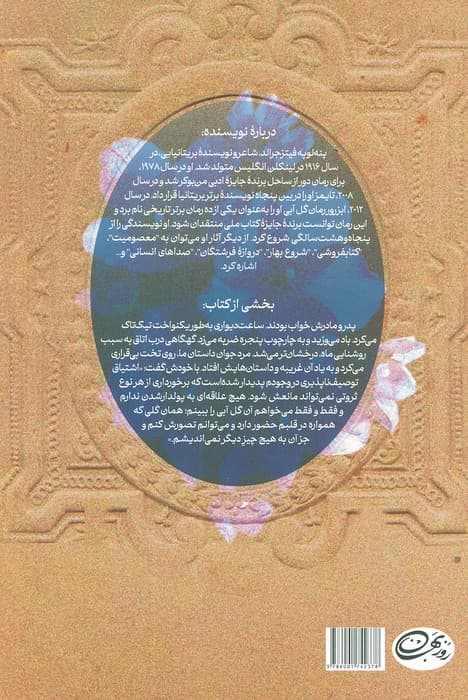 دربارهٔ نویسنده:
پنه‌لوپه فیتزجرالد، شاعر و نویسندهٔ بریتانیایی، در
سال ۱۹۱۶ در لینکلن انگلیس متولد شد. او در سال ۱۹۷۸،
برای رمان دور از ساحل برندهٔ جایزهٔ ادبی من‌بوکر شد و در سال
۲۰۰۸، تایمز او را در بین پنجاه نویسندهٔ برتر بریتانیا قرار داد. در سال
۲۰۱۲، ابزرور رمان گل آبی او را به‌عنوان یکی از ده رمان برتر تاریخی نام برد و
این رمان توانست برندهٔ جایزهٔ کتاب ملی منتقدان شود. او نویسندگی را از
پنجاه‌وهشت‌سالگی شروع کرد. از دیگر آثار او می‌توان به "معصومیت"،
"کتابفروشی"، "شروع بهار"، "دروازهٔ فرشتگان"، "صداهای انسانی" و...
اشاره کرد.
بخشی از کتاب:
پدر و مادرش خواب بودند. ساعت دیواری به‌طور یکنواخت تیک‌تاک
می‌کرد. باد می‌وزید و به چارچوب پنجره ضربه می‌زد. گهگاهی درب اتاق به سبب
روشنایی ماه، درخشان‌تر می‌شد. مرد جوان داستان ما، روی تخت بی‌قراری
می‌کرد و به یاد آن غریبه و داستان‌هایش افتاد. با خودش گفت: «اشتیاق
توصیف‌ناپذیری در وجودم پدیدار شده‌است که برخورداری از هر نوع
ثروتی نمی‌تواند مانعش شود. هیچ علاقه‌ای به پولدار شدن ندارم
و فقط و فقط می‌خواهم آن گل آبی را ببینم؛ همان گلی که
همواره در قلبم حضور دارد و می‌توانم تصورش کنم و
جز آن به هیچ چیز دیگر نمی‌اندیشم.»
روزبهان
9786001742378